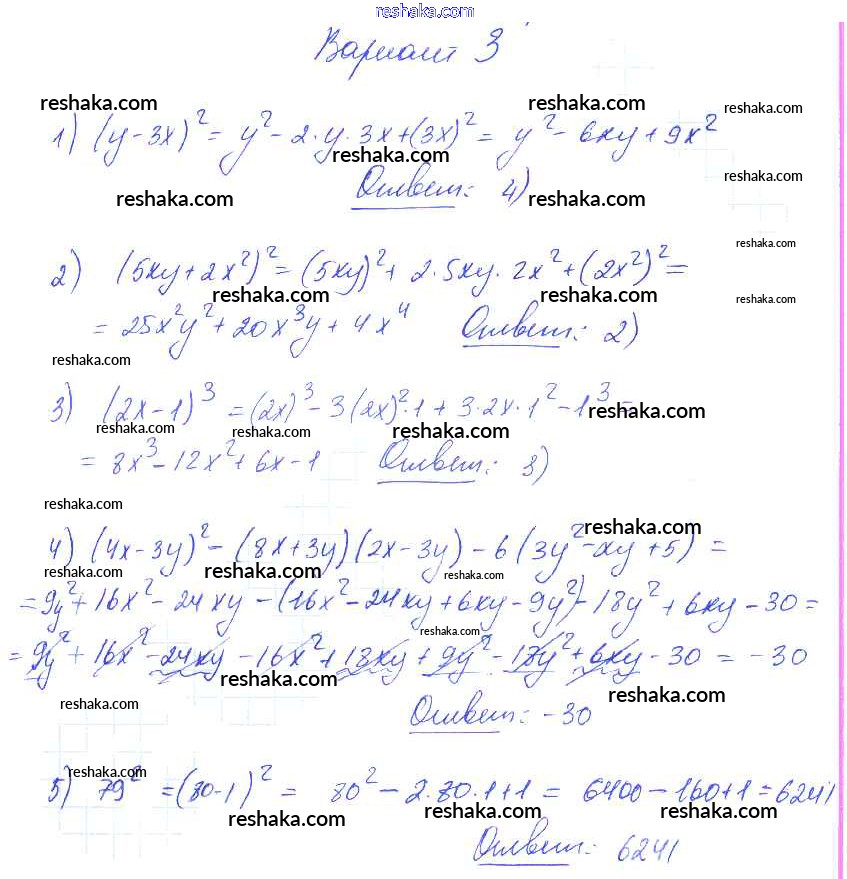 reshaka.com
Вариант 3
reshaka.com reshaka.com reshaka.com
1) (y-3x)² = y² - 2·y·3x+(3x)² = y² - 6xy + 9x²
reshaka.com reshaka.com
Ответ: 4)
reshaka.com reshaka.com
reshaka.com
2) (5xy+2x²)² = (5xy)² + 2·5xy·2x² + (2x²)² =
reshaka.com reshaka.com reshaka.com
= 25x²y² + 20x³y + 4x⁴ Ответ: 2)
reshaka.com
3) (2x-1)³ = (2x)³ - 3(2x)²·1 + 3·2x·1² - 1³ =
reshaka.com
reshaka.com reshaka.com reshaka.com
= 8x³ - 12x² + 6x - 1 Ответ: 3)
reshaka.com
reshaka.com
4) (4x-3y)² - (8x+3y)(2x-3y) - 6(3y²-xy+5) =
reshaka.com reshaka.com reshaka.com
= 9y² + 16x² - 24xy - (16x² - 24xy + 6xy - 9y²) - 18y² + 6xy - 30 =
reshaka.com
= 9y² + 16x² - 24xy - 16x² + 18xy + 9y² - 18y² + 6xy - 30 = -30
reshaka.com reshaka.com
reshaka.com reshaka.com
Ответ: -30
reshaka.com
5) 79² = (80-1)² = 80² - 2·80·1+1 = 6400 - 160+1 = 6241
reshaka.com reshaka.com reshaka.com
Ответ: 6241
reshaka.com